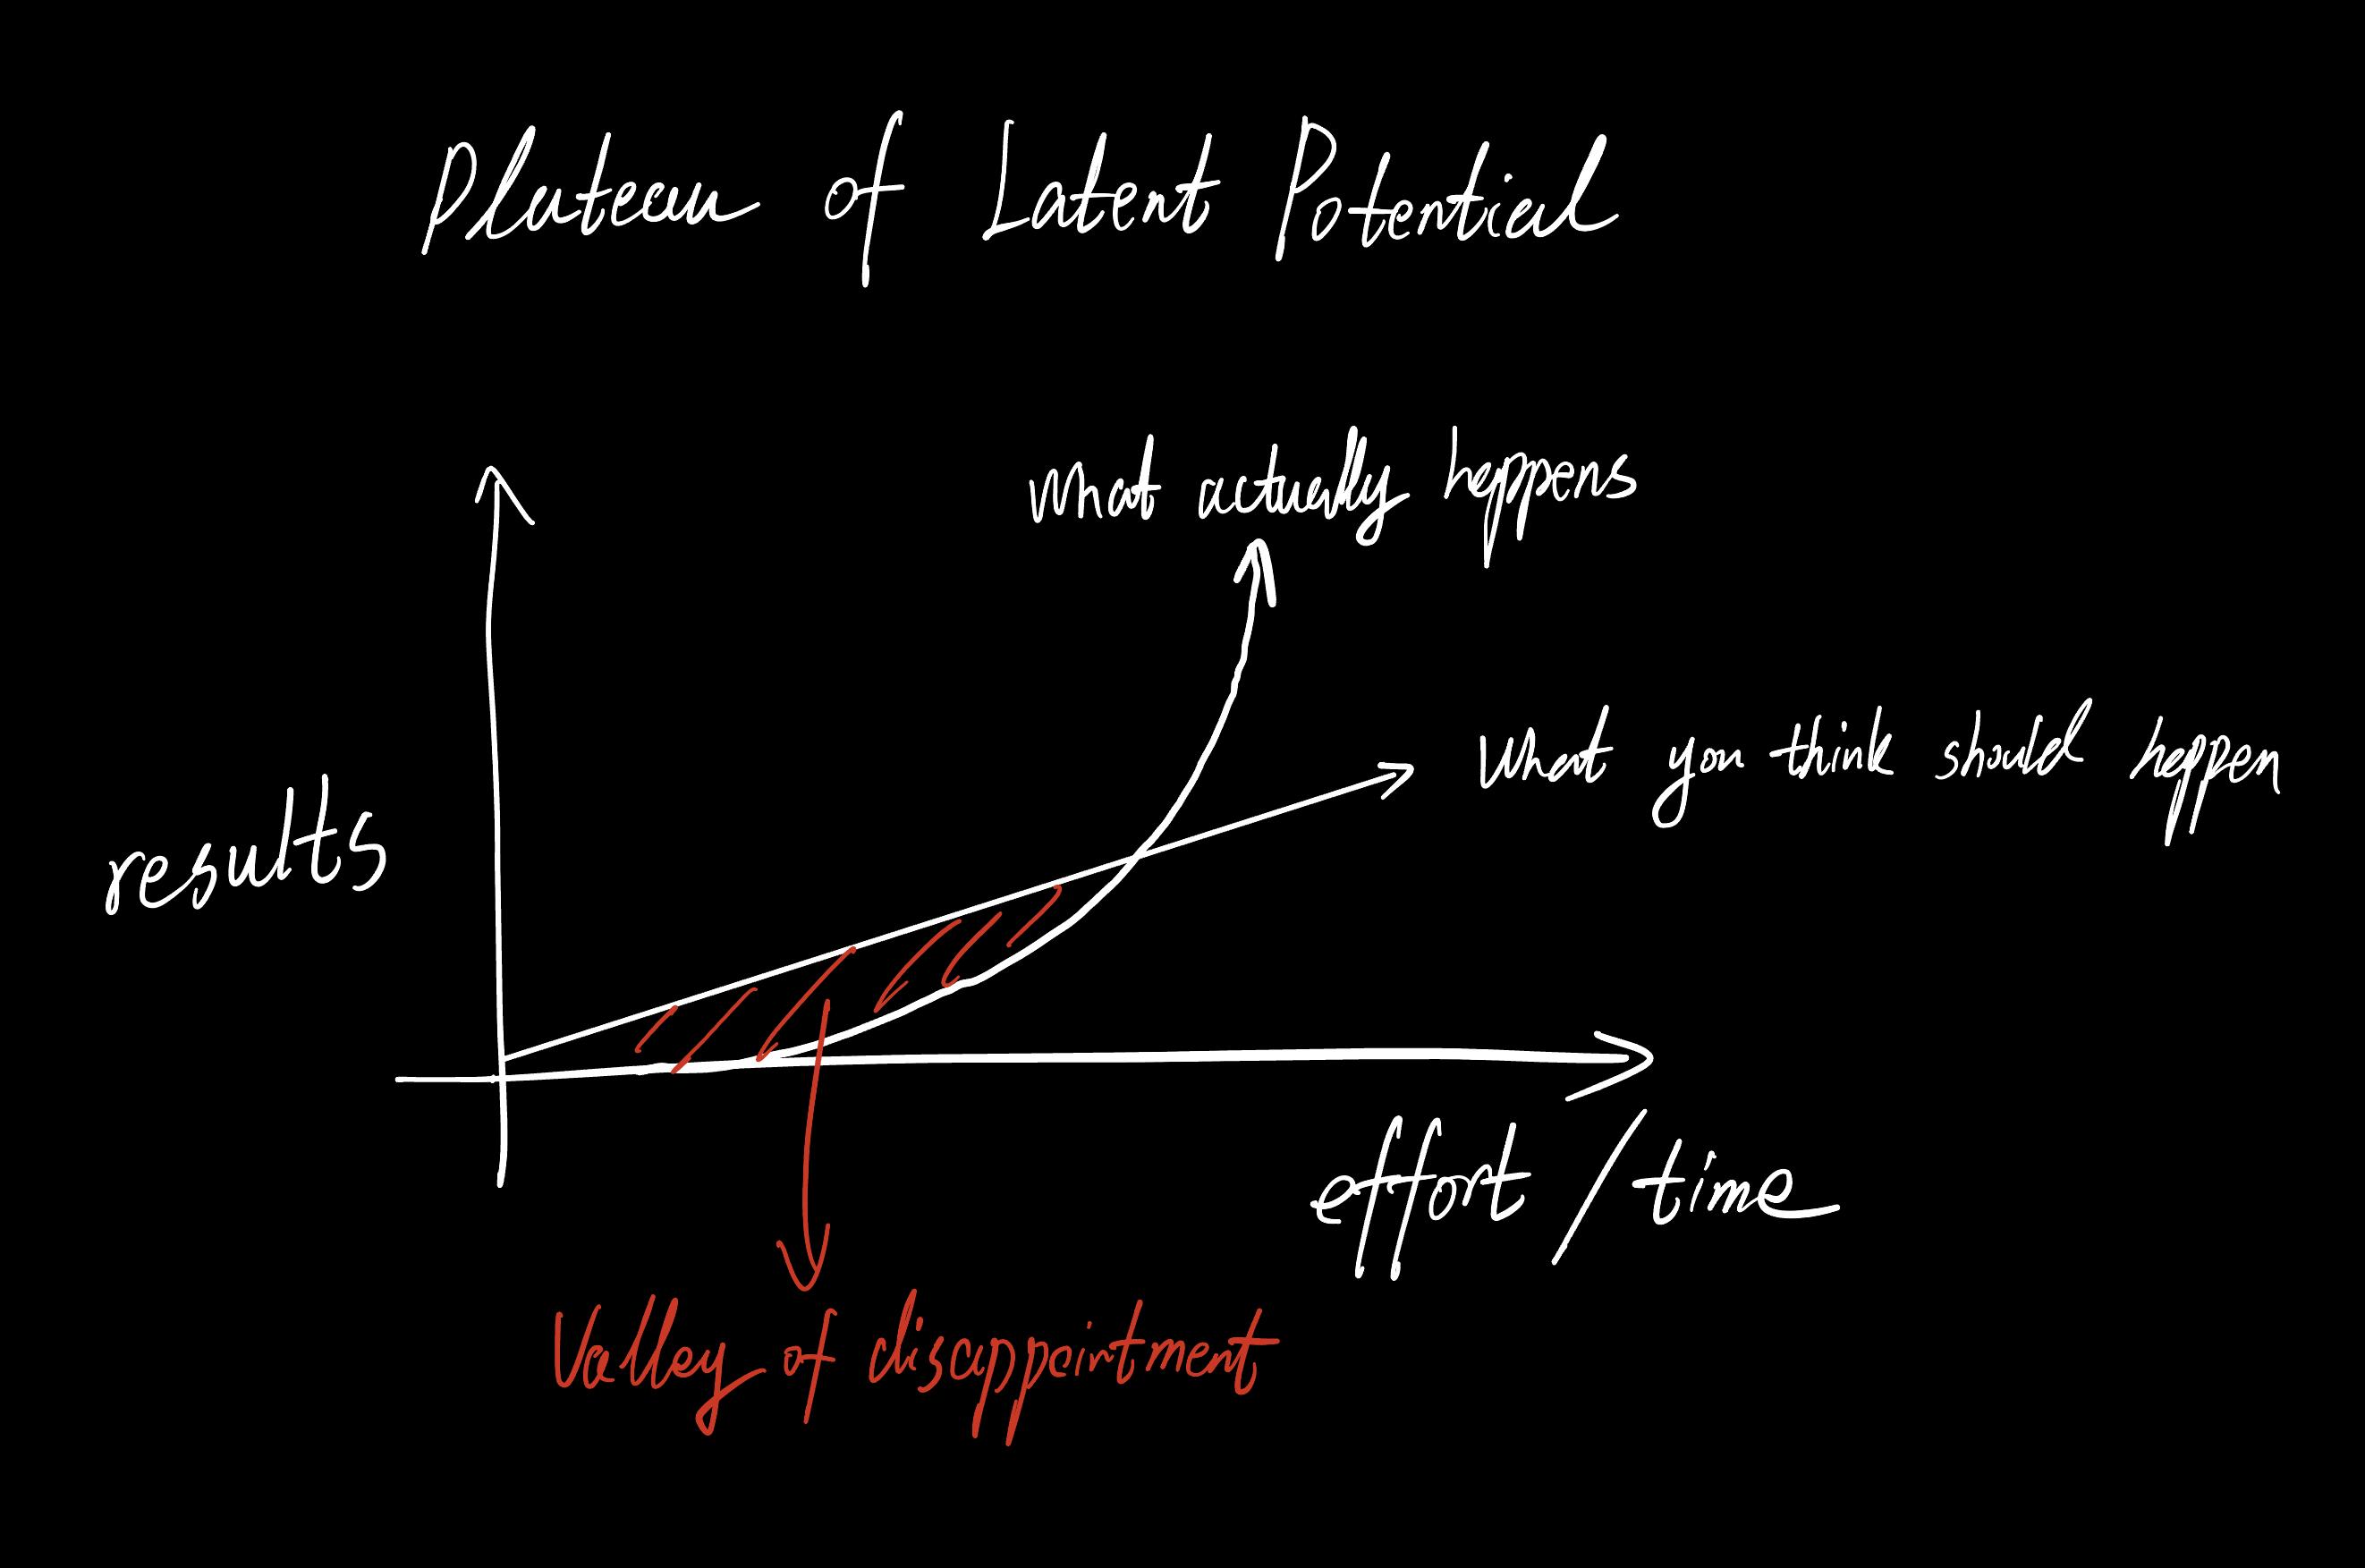 Plateau of Latent Potential
What actually happens
What you think should happen
results
effort / time
Valley of disappointment